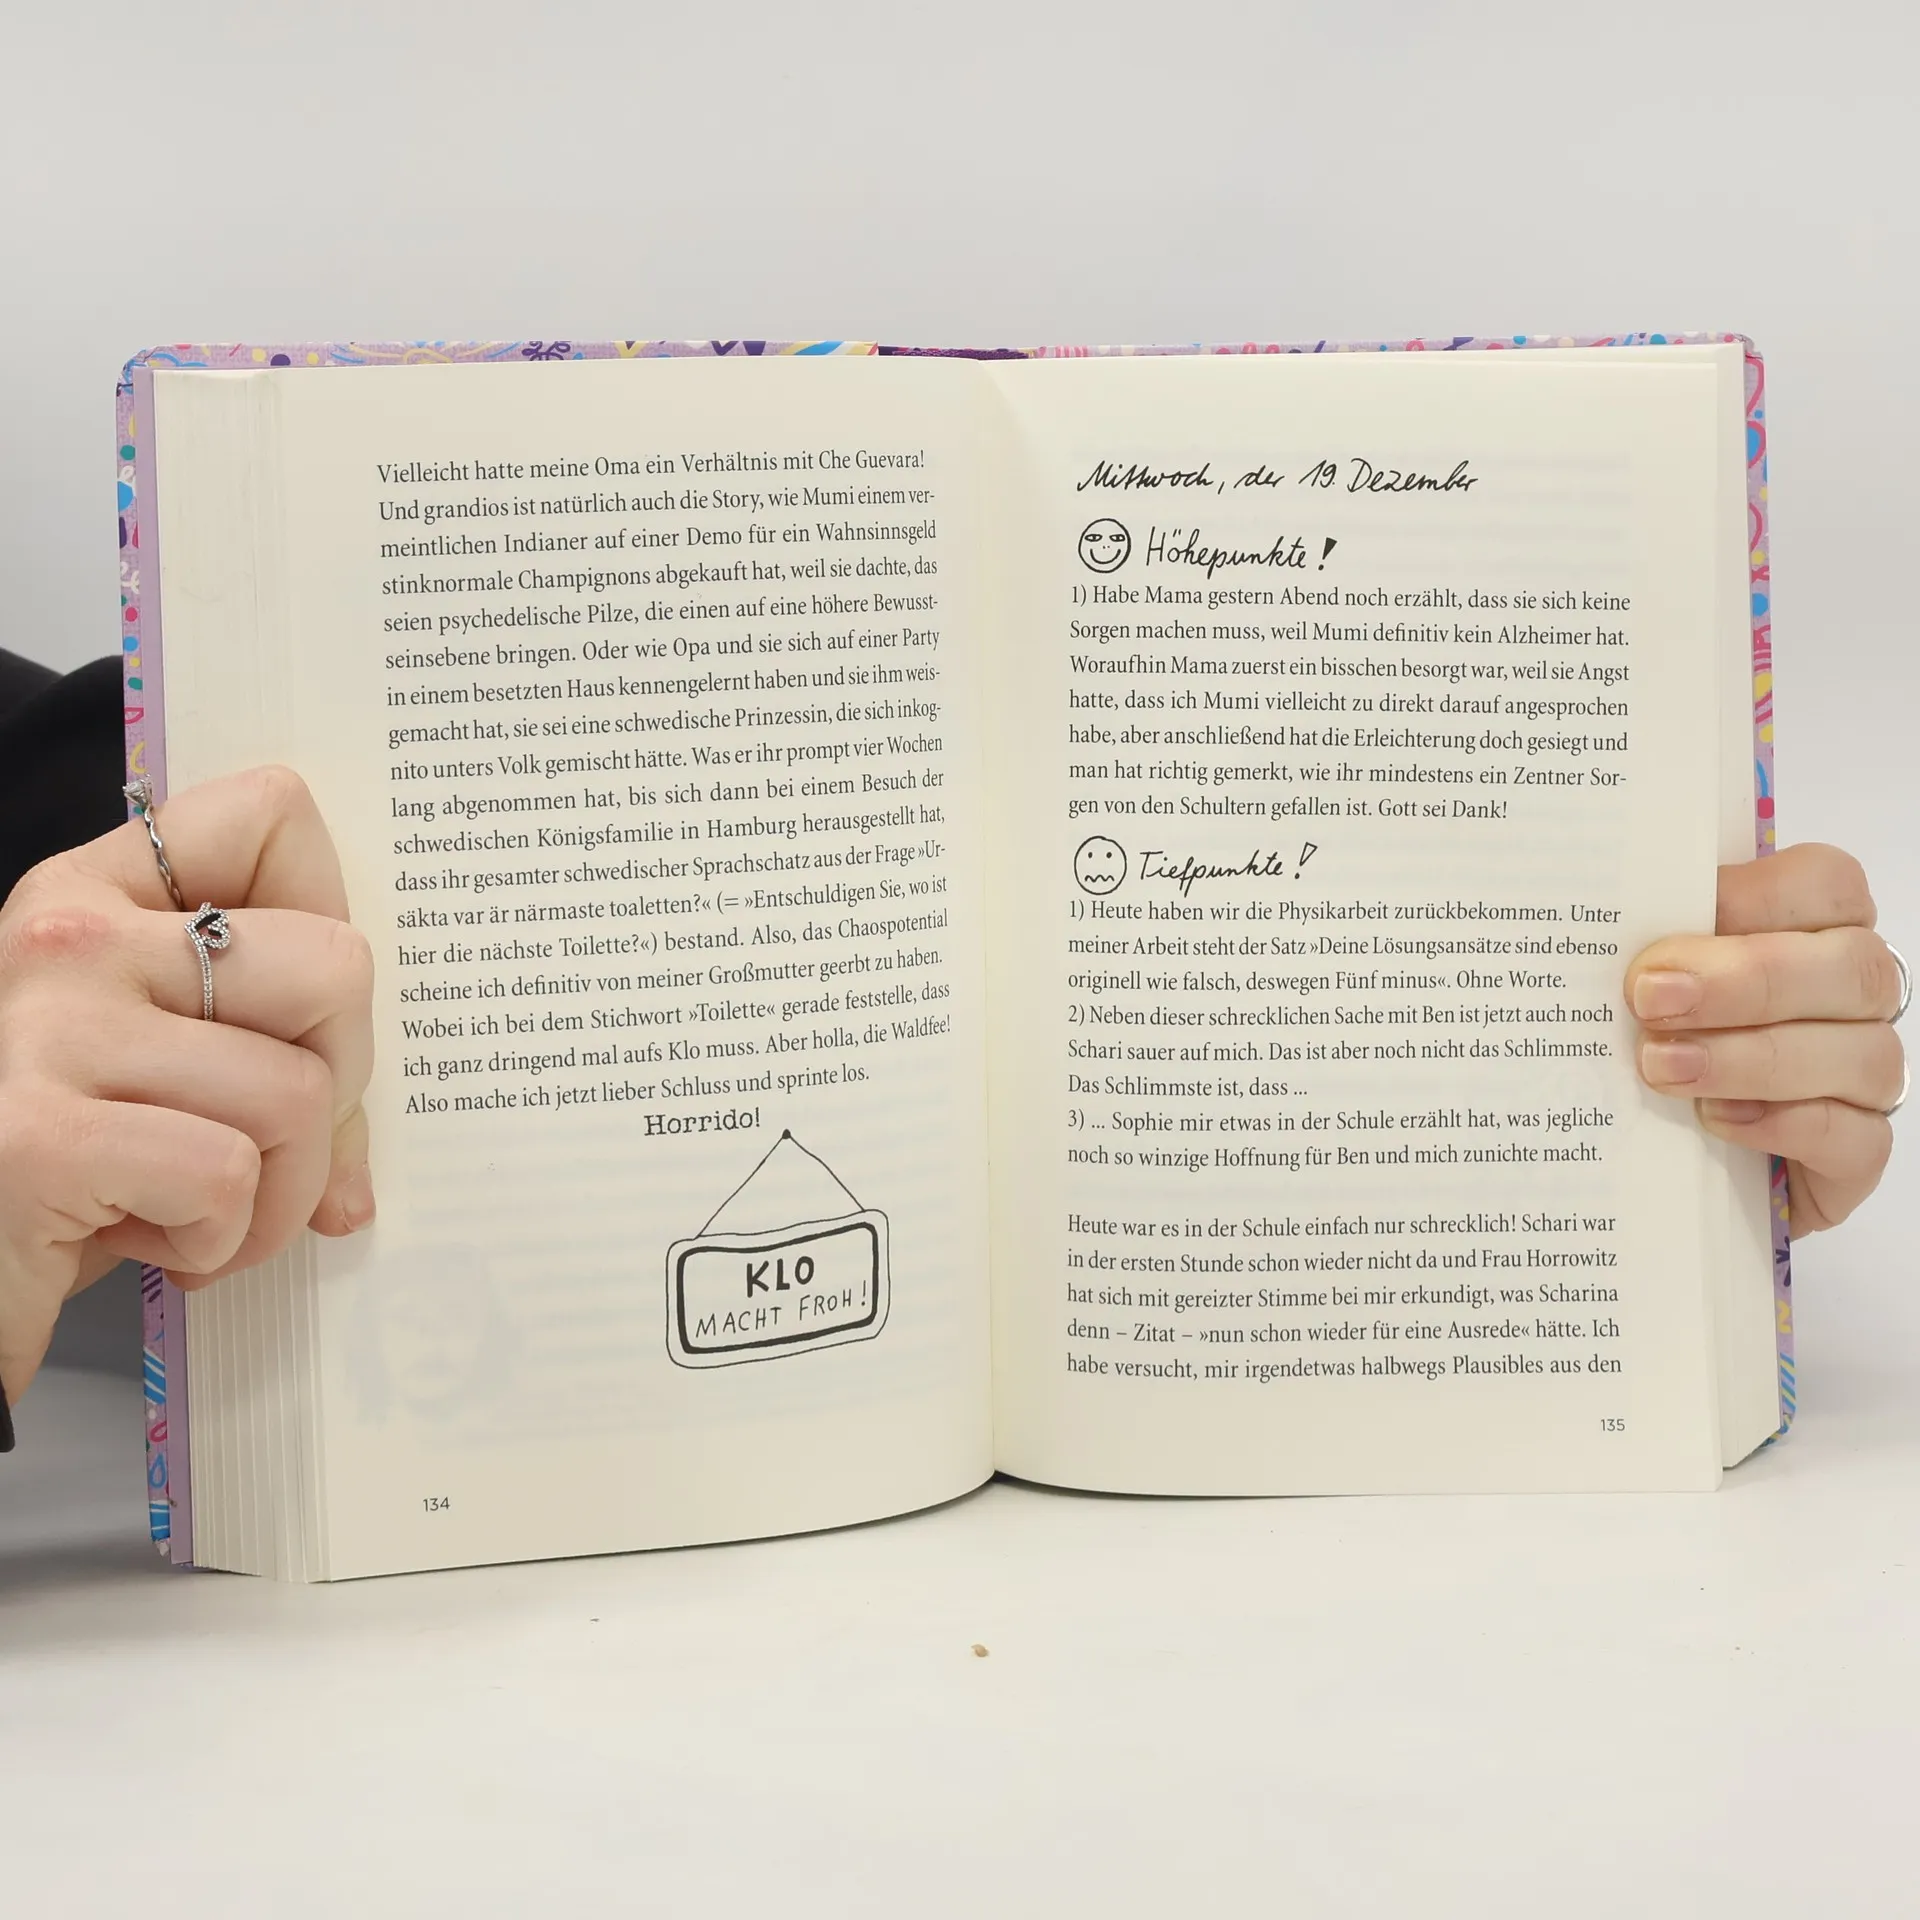 Vielleicht hatte meine Oma ein Verhältnis mit Che Guevara!
Und grandios ist natürlich auch die Story, wie Mumi einem ver-
meintlichen Indianer auf einer Demo für ein Wahnsinnsgeld
stinknormale Champignons abgekauft hat, weil sie dachte, das
seien psychedelische Pilze, die einen auf eine höhere Bewusst-
seinsebene bringen. Oder wie Opa und sie sich auf einer Party
in einem besetzten Haus kennengelernt haben und sie ihm weis-
gemacht hat, sie sei eine schwedische Prinzessin, die sich inkog-
nito unters Volk gemischt hätte. Was er ihr prompt vier Wochen
lang abgenommen hat, bis sich dann bei einem Besuch der
schwedischen Königsfamilie in Hamburg herausgestellt hat,
dass ihr gesamter schwedischer Sprachschatz aus der Frage »Ur-
säkta var är närmaste toaletten?« (= »Entschuldigen Sie, wo ist
hier die nächste Toilette?«) bestand. Also, das Chaospotential
scheine ich definitiv von meiner Großmutter geerbt zu haben.
Wobei ich bei dem Stichwort »Toilette« gerade feststelle, dass
ich ganz dringend mal aufs Klo muss. Aber holla, die Waldfee!
Also mache ich jetzt lieber Schluss und sprinte los.
Horrido!
KLO
MACHT FROH!
134
Mittwoch, der 19. Dezember
Höhepunkte!
1) Habe Mama gestern Abend noch erzählt, dass sie sich keine
Sorgen machen muss, weil Mumi definitiv kein Alzheimer hat.
Woraufhin Mama zuerst ein bisschen besorgt war, weil sie Angst
hatte, dass ich Mumi vielleicht zu direkt darauf angesprochen
habe, aber anschließend hat die Erleichterung doch gesiegt und
man hat richtig gemerkt, wie ihr mindestens ein Zentner Sor-
gen von den Schultern gefallen ist. Gott sei Dank!
Tiefpunkte!
1) Heute haben wir die Physikarbeit zurückbekommen. Unter
meiner Arbeit steht der Satz »Deine Lösungsansätze sind ebenso
originell wie falsch, deswegen Fünf minus«. Ohne Worte.
2) Neben dieser schrecklichen Sache mit Ben ist jetzt auch noch
Schari sauer auf mich. Das ist aber noch nicht das Schlimmste.
Das Schlimmste ist, dass ...
3) ... Sophie mir etwas in der Schule erzählt hat, was jegliche
noch so winzige Hoffnung für Ben und mich zunichte macht.
Heute war es in der Schule einfach nur schrecklich! Schari war
in der ersten Stunde schon wieder nicht da und Frau Horrowitz
hat sich mit gereizter Stimme bei mir erkundigt, was Scharina
denn – Zitat – »nun schon wieder für eine Ausrede« hätte. Ich
habe versucht, mir irgendetwas halbwegs Plausibles aus den
135